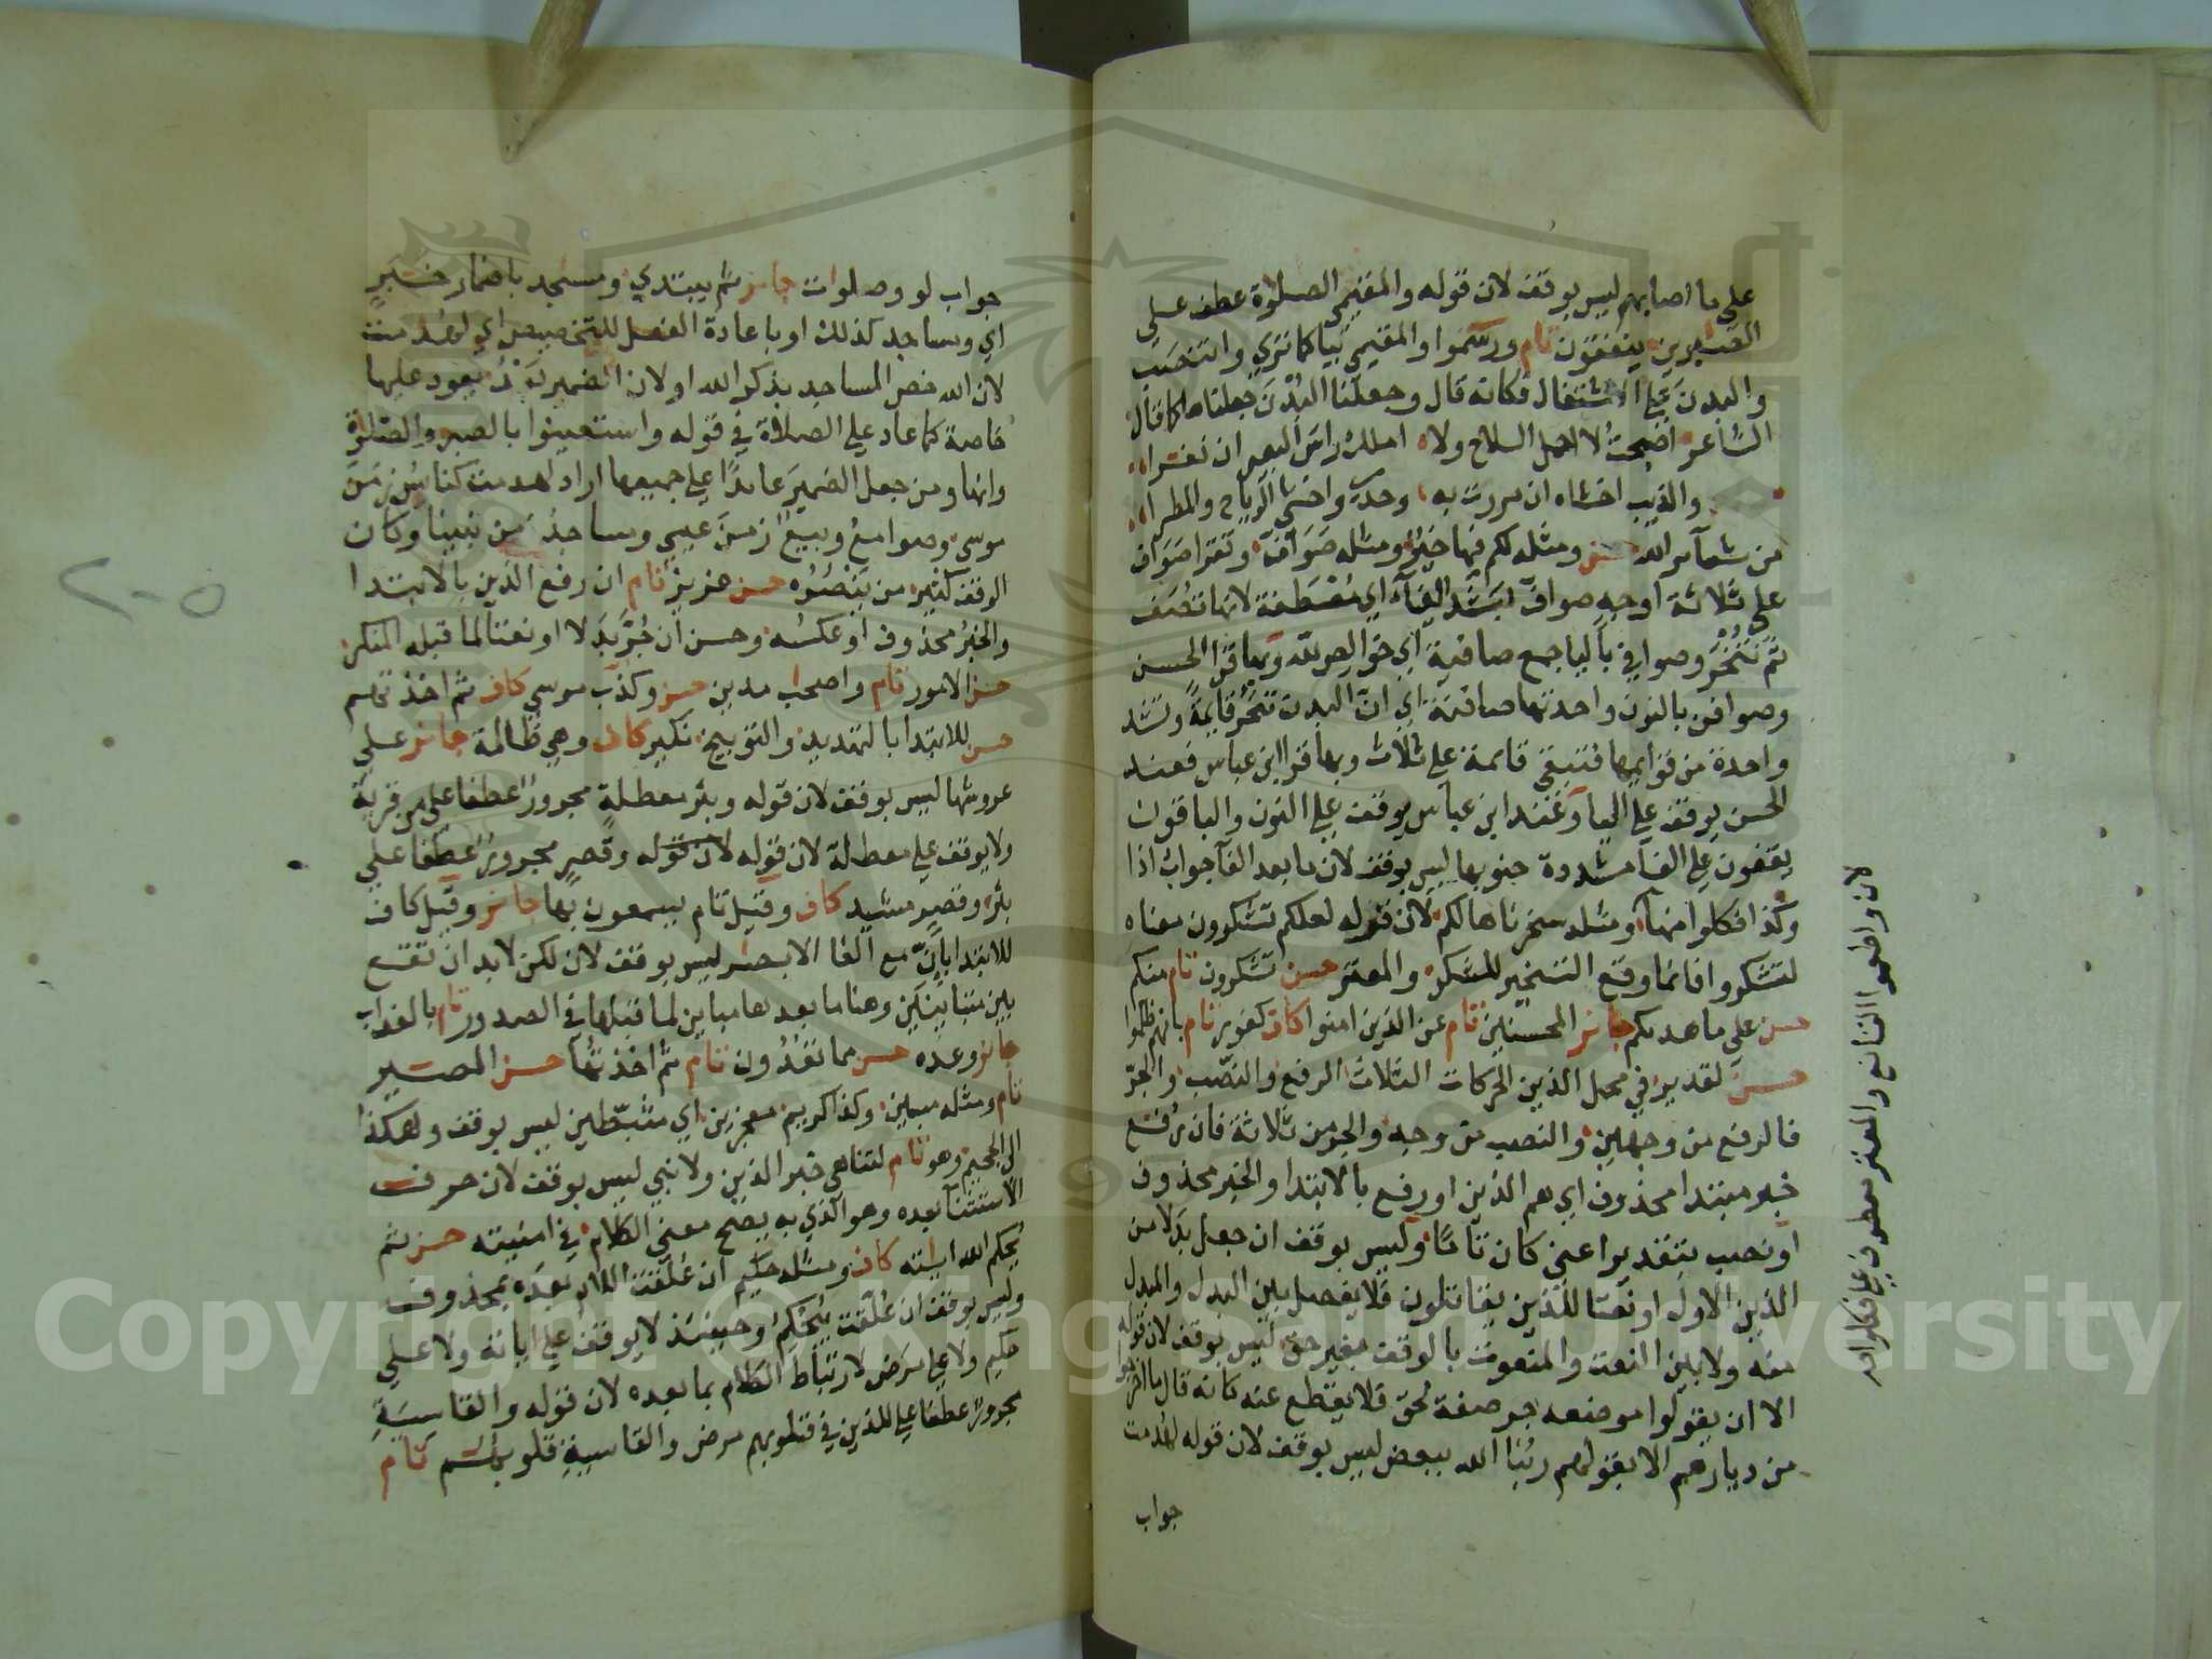 على ما اصابهم ليس بوقف لان قوله والمقيمي الصلوة عطف على
الصبرين ينفقون تام ورسموا والمقيمي بيا كما تري وانتصب
والبدن علي الاشتغال فكانه قال وجعلنا البدن جعلناها كما قال
الشاعر اصبحت لا احمل السلاح ولا املك راس البعير ان نفرا
والذيب اخشاه ان مررت به وحدي واخشي الرياح والمطرا
من شعآئر الله حسن ومثله لكم فيها خير ومثله صوآف وتقرا صوآف
على ثلاثة اوجه صوآف بتشديد الفآء اي مصطفة لانها تصف
ثم تنحر وصوافي باليا جمع صافية اي خوالص لله وبها قرا الحسن
وصوافن بالنون واحدتها صافنة اي ان البدن تنحر قايمة وتشد
واحدة من قوايمها فتبقي قائمة علي ثلاث وبها قرا ابن عباس فعند
الحسن يوقف علي اليا وعند ابن عباس يوقف علي النون والباقون
يقفون علي الفآ مشددة جنوبها ليس بوقف لان ما بعد الفآ جواب اذا
وكذا فكلوا منها ومثله سخرناها لكم لان قوله لعلكم تشكرون معناه
لتشكروا فانما وقع التسخير للشكر والمعتر حسن تشكرون تام منكم
حسن علي ما هديكم جائز المحسنين تام عن الذين امنوا كاف كفور تام بانهم ظلموا
حسن لقدير في محل الذين الحركات الثلاث الرفع والنصب والجر
فالرفع من وجهين والنصب من وجه والجر من ثلاثة فان رفع
خبر مبتدا محذوف اي هم الذين او رفع بالابتدا والخبر محذوف
او نصب بتقدير اعني كان تاما وليس بوقف ان جعل بدلا من
الذين الاول او نعتا للذين يقاتلون فلا يفصل بين البدل والمبدل
منه ولا بين النعت والمنعوت بالوقف بغير حق ليس بوقف لان قوله
الا ان يقولوا موضعه جر صفة لحق فلا يقطع عنه كانه قال ما اخرجوا
من ديارهم الا بقولهم ربنا الله ببعض ليس بوقف لان قوله لهدمت
جواب
لان واطعموا القانع والمعتر معطوف علي فكلوا منها
جواب لو وصلوات جائز ثم يبتدي ومسجد باضمار خبر
اي ومساجد كذلك او باعادة الفعل للتخصيص اي لهدمت
لان الله خص المساجد بذكر الله او لان الضمير بعد يعود عليها
خاصة كما عاد علي الصلاة في قوله واستعينوا بالصبر والصلوة
وانها ومن جعل الضمير عائدا علي جميعها اراد لهدمت كنائس زمن
موسي وصوامع وبيع زمن عيسي ومساجد من نبينا وكان
الوقف كثير من ينصره حسن عزيز تام ان رفع الذين بالابتدا
والخبر محذوف او عكسه وحسن ان جر بدلا او نعتا لما قبله المنكر
حسن الامور تام واصحب مدين حسن وكذب موسي كاف ثم اخذتهم
حسن للابتدا بالتهديد والتوبيخ نكير كاف وهي ظالمة جائز علي
عروشها ليس بوقف لان قوله وبئر معطلة مجرور عطفا علي من قرية
ولا يوقف علي معطلة لان قوله لان قوله وقصر مجرور عطفا علي
بئر وقصر مشيد كاف وقيل تام يسمعون بها جائز وقيل كاف
للابتدا بان مع الفا الابصر ليس بوقف لان لكن لابد ان تقع
بين متباينين وهنا ما بعدها مباين لما قبلها في الصدور تام بالعذاب
جائز وعده حسن مما تعدون تام ثم اخذتها حسن المصير
تام ومثله مبين وكذا كريم معجزين اي مثبطين ليس بوقف وهكذا
الي الجحيم وهو تام لتناهي خبر الذين ولا نبي ليس بوقف لان حرف
الاستثنآ بعده وهو الذي به يصح معني الكلام في امنيته حسن ثم
يحكم الله ايته كاف ومثله حكيم ان علقت اللام بعده بمحذوف
وليس بوقف ان علقت بيحكم وحينئذ لا يوقف علي اياته ولا علي
حكيم ولا علي مرض لارتباط الكلام بما بعده لان قوله والقاسية
مجرور عطفا علي للذين في قلوبهم مرض والقاسية قلوبهم تام